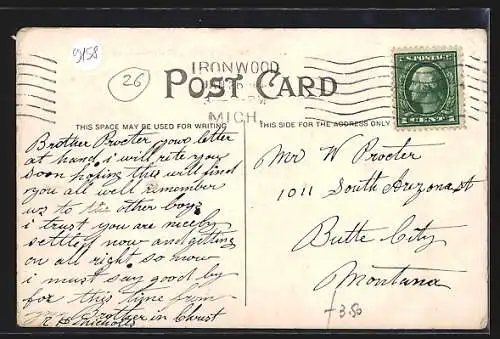 9158
26
IRONWOOD
MICH.
POST CARD
U.S. POSTAGE
1 CENT 1
THIS SPACE MAY BE USED FOR WRITING
THIS SIDE FOR THE ADDRESS ONLY
Brother Procter your letter
at hand i will rite you
soon hoping this will find
you all well remember
us to the other boys
i trust you are nicely
settled now and getting
on all right so now
i must say good by
for this time from
Brother in Christ
R H Nicholls
Mr W Procter
1011 South Arizona st
Butte City
Montana
3.50